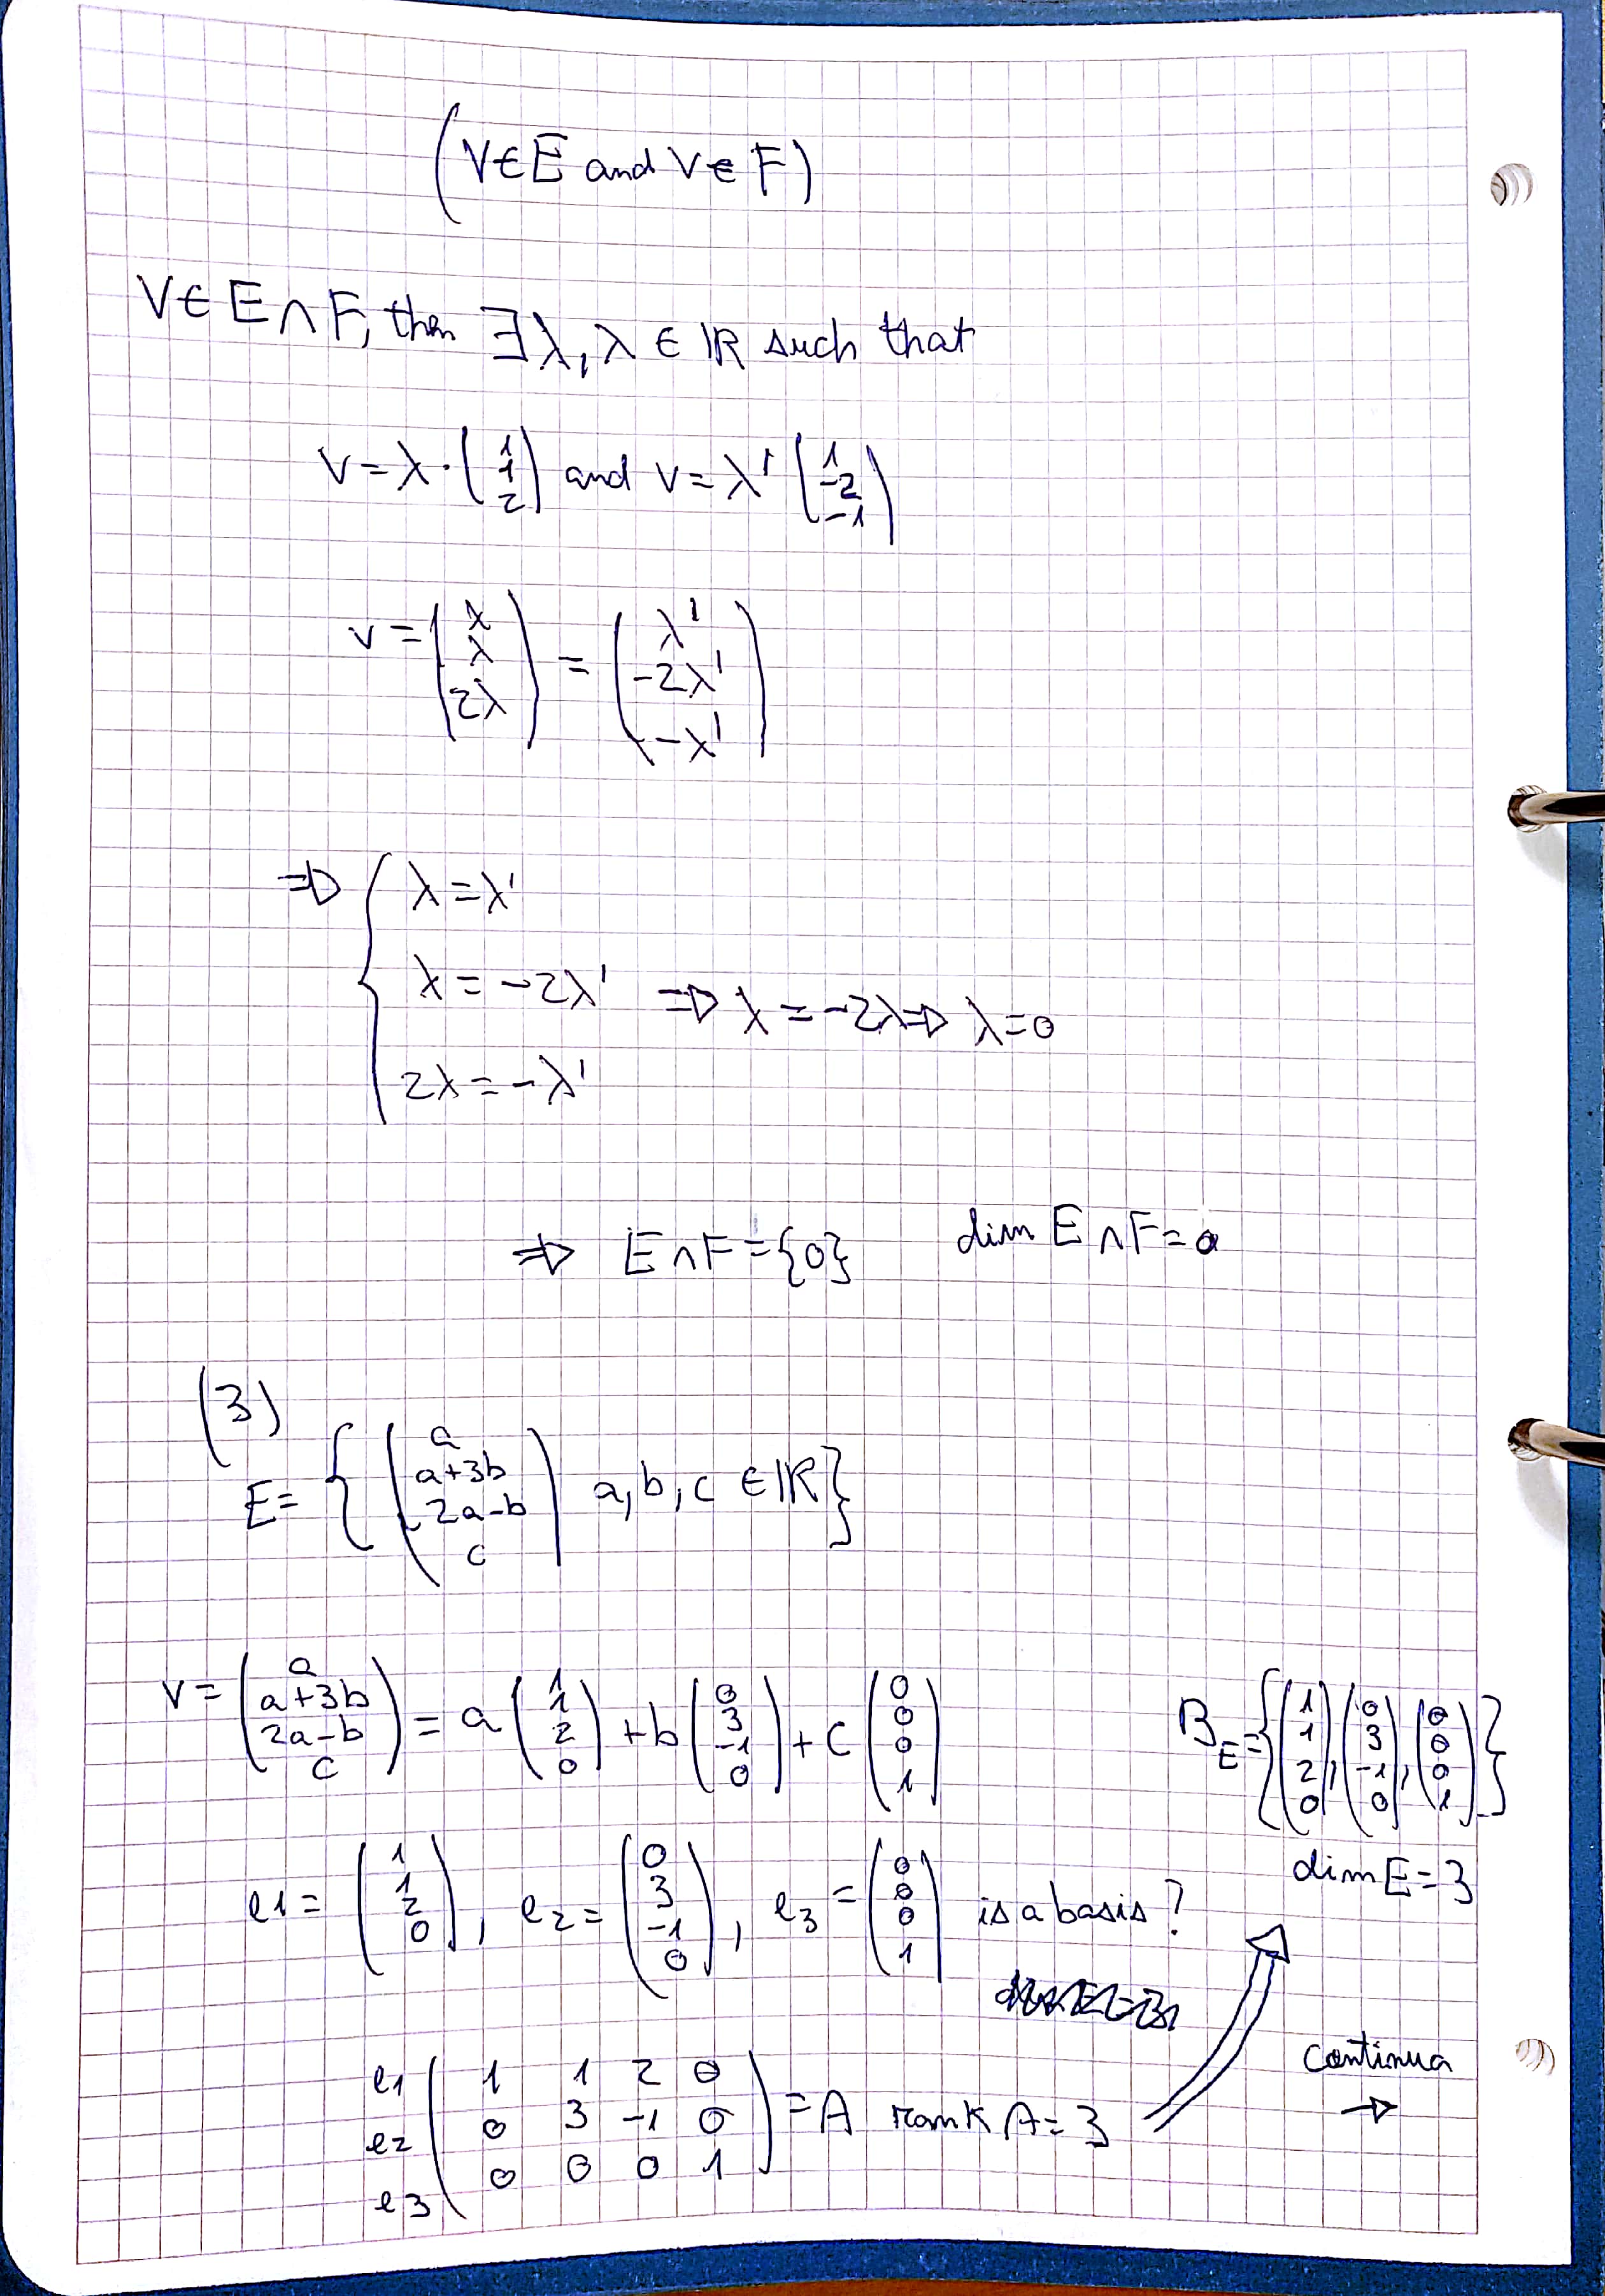 (V∈E and V∈F)
V∈E∩F, then ∃λ, λ ∈ ℝ such that
V = λ · (1 1 2) and V = λ' (1 -2 -1)
v = (λ λ 2λ) = (λ' -2λ' -λ')
⇒ { λ = λ'
λ = -2λ' ⇒ λ = -2λ ⇒ λ = 0
2λ = -λ'
⇒ E∩F = {0} dim E∩F = 0
(3)
E = { (a a+3b 2a-b c) a, b, c ∈ ℝ }
V = (a a+3b 2a-b c) = a (1 1 2 0) + b (0 3 -1 0) + c (0 0 0 1)
B_E = { (1 1 2 0), (0 3 -1 0), (0 0 0 1) }
dim E = 3
e1 = (1 1 2 0), e2 = (0 3 -1 0), e3 = (0 0 0 1) is a basis?
e1 ( 1 1 2 0
e2 0 3 -1 0 ) = A rank A = 3
e3 0 0 0 1
continua
→